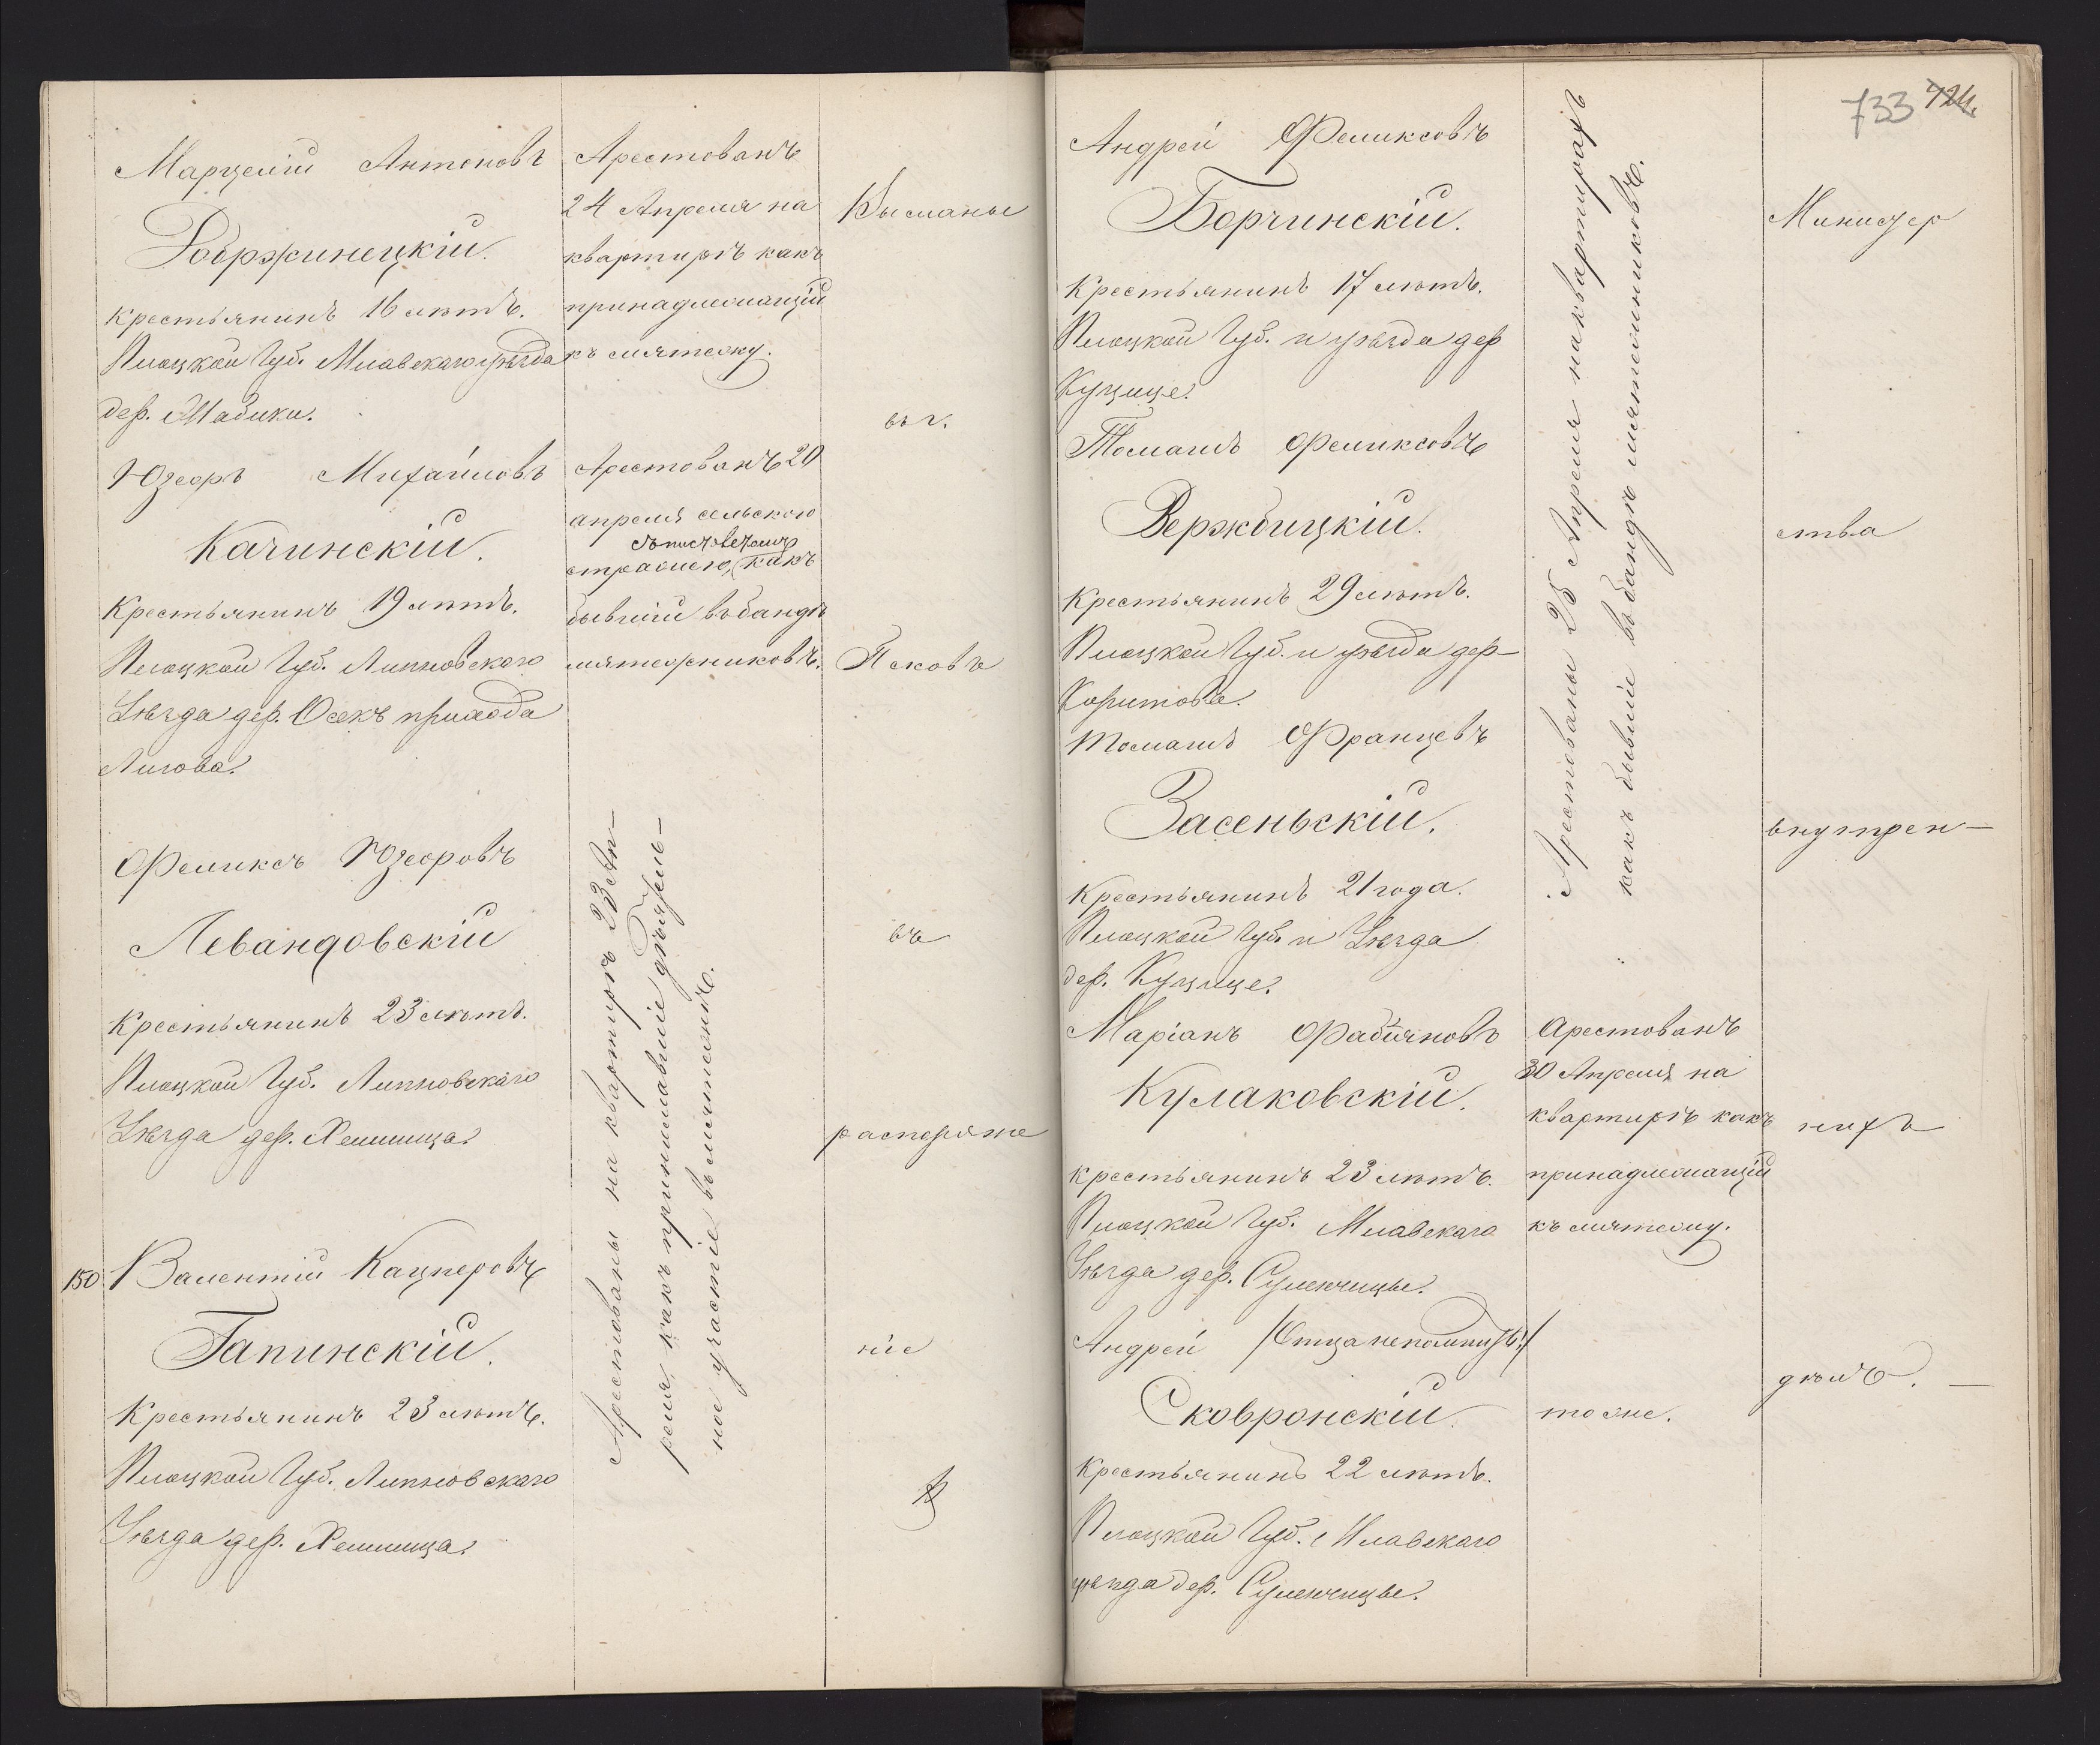 Марцелій Антоновъ
Добржинецкій.
крестьянинъ 16 лѣтъ.
Плоцкой Губ. Млавскаго уѣзда
дер. Мадики.
Арестованъ
24 Апреля на
квартирѣ какъ
принадлежащій
къ мятежу.
Высланы
въ г.
Юзефъ Михайловъ
Качинскій.
Крестьянинъ 19 лѣтъ.
Плоцкой Губ. Липновскаго
Уѣзда дер. Осекъ прихода
Лигова.
Арестованъ 20
апреля сельскою
стражею, какъ
бывшій въ бандѣ
мятежниковъ.
Псковъ
Феликсъ Юзефовъ
Левандовскій
Крестьянинъ 23 лѣтъ.
Плоцкой Губ. Липновскаго
Уѣзда дер.
въ
распоряже
150 Валентій Кацперовъ
Гапинскій.
Крестьянинъ 23 лѣтъ.
Плоцкой Губ. Липновскаго
Уѣзда дер.
ніе
Арестованы на квартирѣ 23 Ап-
реля, какъ принимавшіе дѣятель-
ное участіе въ мятежѣ.
733 724.
Андрей Феликсовъ
Борчинскій.
Крестьянинъ 17 лѣтъ.
Плоцкой Губ. и уѣзда дер
Куцице.
Министер
Томашъ Феликсовъ
Вержбицкій.
Крестьянинъ 29 лѣтъ.
Плоцкой Губ. и уѣзда дер-
Коритова.
ства
Томашъ Францевъ
Засеньскій.
Крестьянинъ 21 года.
Плоцкой Губ. и Уѣзда
дер. Куцице.
внутрен-
Арестованы 25 Апреля на квартирахъ
какъ бывшіе въ бандѣ мятежниковъ.
Маріанъ Фабіяновъ
Кулаковскій.
крестьянинъ 23 лѣтъ.
Плоцкой Губ. Млавскаго
Уѣзда дер. Суленчицы.
Арестованъ
30 Апреля на
квартирѣ какъ
принадлежащій
къ мятежу.
нихъ
Андрей /Отца не помнитъ:/
Сковронскій.
Крестьянинъ 22 лѣтъ.
Плоцкой Губ. Млавскаго
уѣзда дер. Суленчицы.
тоже.
дѣлъ. —